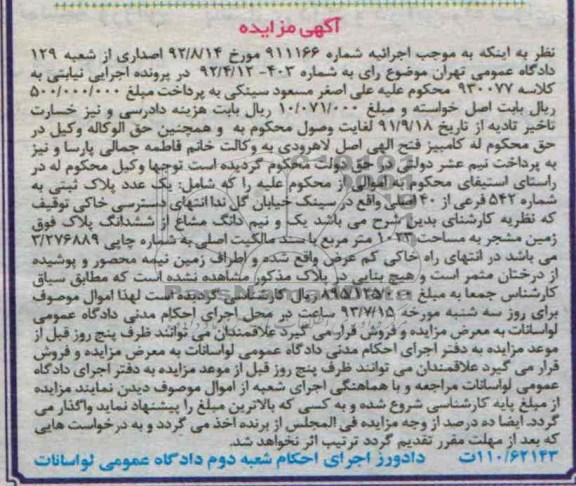 آگهی مزایده
نظر به اینکه به موجب اجرائیه شماره ۹۱۱۱۶۶ مورخ ۹۲/۸/۱۴ اصداری از شعبه ۱۲۹
دادگاه عمومی تهران موضوع رای به شماره ۴۰۳- ۹۲/۴/۱۲ در پرونده اجرایی نیابتی به
کلاسه ۹۳۰۰۷۷ محکوم علیه علی اصغر مسعود سینکی به پرداخت مبلغ ۵۰۰/۰۰۰/۰۰۰
ریال بابت اصل خواسته و مبلغ ۱۰/۰۷۱/۰۰۰ ریال بابت هزینه دادرسی و نیز خسارت
تاخیر تادیه از تاریخ ۹۱/۹/۱۸ لغایت وصول محکوم به و همچنین حق الوکاله وکیل در
حق محکوم له کامبیز فتح الهی اصل لاهرودی به وکالت خانم فاطمه جمالی پارسا و نیز
به پرداخت نیم عشر دولتی در حق دولت محکوم گردیده است توجها وکیل محکوم له در
راستای استیفای محکوم به اموالی از محکوم علیه را که شامل: یک عدد پلاک ثبتی به
شماره ۵۴۲ فرعی از ۴۰ اصلی واقع در سینک خیابان گل ندا انتهای دسترسی خاکی توقیف
که نظریه کارشناس بدین شرح می باشد یک و نیم دانگ مشاع از ششدانگ پلاک فوق
زمین مشجر به مساحت ۱۰۲۳ متر مربع با سند مالکیت اصلی به شماره چاپی ۳/۲۷۶۸۸۹
می باشد در انتهای راه خاکی کم عرض واقع شده و اطراف زمین نیمه محصور و پوشیده
از درختان مثمر است و هیچ بنایی در پلاک مذکور مشاهده نشده است که مطابق سیاق
کارشناس جمعا به مبلغ ریال کارشناسی گردیده است لهذا اموال موصوف
برای روز سه شنبه مورخه ۹۳/۷/۱۵ ساعت در محل اجرای احکام مدنی دادگاه عمومی
لواسانات به معرض مزایده و فروش قرار می گیرد علاقمندان می توانند ظرف پنج روز قبل از
موعد مزایده به دفتر اجرای احکام مدنی دادگاه عمومی لواسانات به معرض مزایده و فروش
قرار می گیرد علاقمندان می توانند ظرف پنج روز قبل از موعد مزایده به دفتر اجرای دادگاه
عمومی لواسانات مراجعه و با هماهنگی اجرای شعبه از اموال موصوف دیدن نمایند مزایده
از مبلغ پایه کارشناسی شروع شده و به کسی که بالاترین مبلغ را پیشنهاد نماید واگذار می
گردد. ایضا ده درصد از وجه مزایده فی المجلس از برنده اخذ می گردد و به درخواست هایی
که بعد از مهلت مقرر تقدیم گردد ترتیب اثر نخواهد شد.
۱۱۰/۶۲۱۴۳ت دادورز اجرای احکام شعبه دوم دادگاه عمومی لواسانات